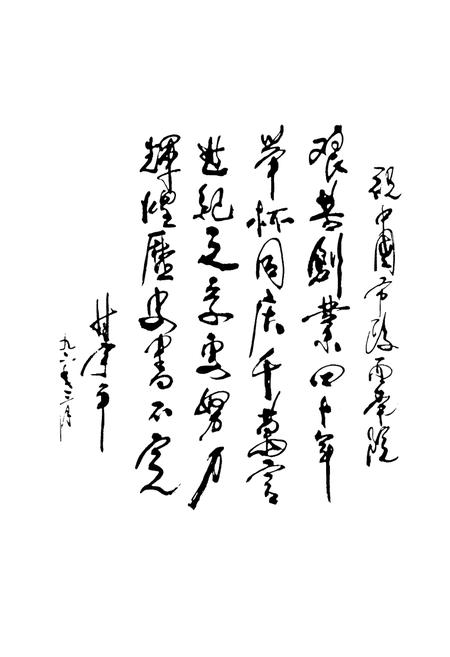 祝中國市政西南院
艱苦創業四十年
舉杯同慶千萬言
世紀之交更努力
輝煌歷史書不完
林平
九六年三月